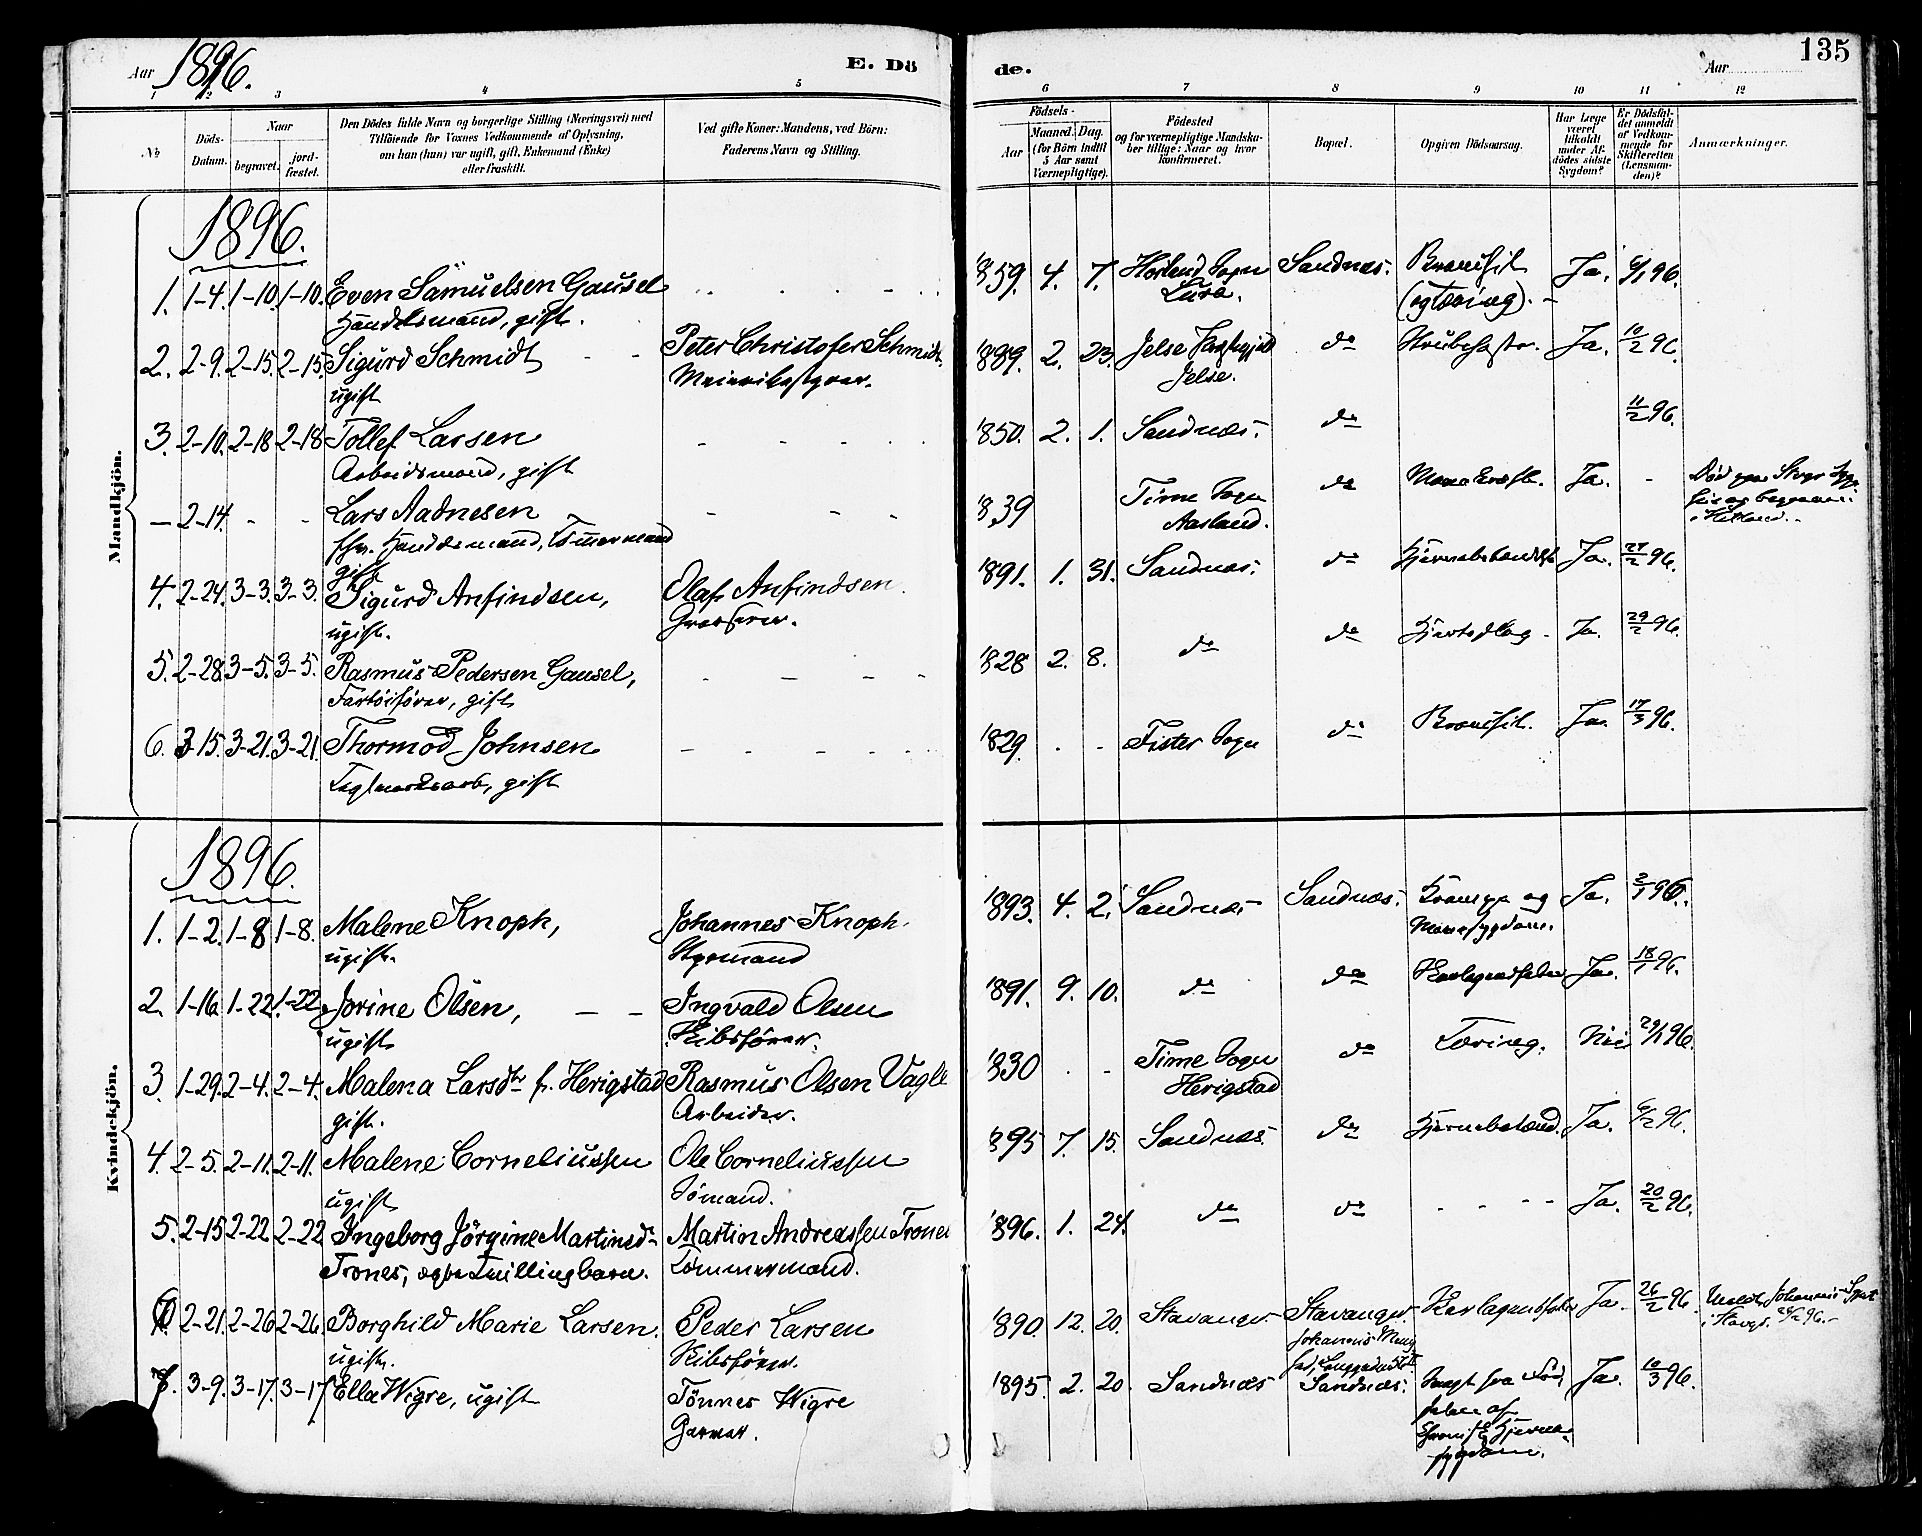 Aar 1896. E. Dö de. Aar 135
1 2 3 4 5 6 7 8 9 10 11 12
№
Döds-Datum.
Naar begravet. jordfæstet.
Den Dödes fulde Navn og borgerlige Stilling (Næringsvei) med
Tilföiende for Voxnes Vedkommende af Oplysning,
om han (hun) var ugift, gift, Enkemand (Enke)
eller fraskilt.
Ved gifte Koner: Mandens, ved Börn:
Faderens Navn og Stilling.
Födsels-
Aar Maaned. Dag.
(for Börn indtil
5 Aar samt
Værnepligtige).
Födested
og for værnepligtige Mandskaber tillige: Naar og hvor
konfirmeret.
Bopæl.
Opgiven Dödsaarsag.
Har Læge
været
tilkaldt
under Afdödes sidste
Sygdom?
Er Dödsfaldet anmeldt
af Vedkommende for
Skifteretten
(Lensmanden)?
Anmærkninger.
Mandkjön.
1896.
1. 1-4. 1-10. 1-10. Even Samuelsen Gausel 1859. 4. 7. Høiland Sogn Sandnæs. Ja. 6/1 96.
Handelsmand, gift. Lura.
2. 2-9. 2-15. 2-15. Sigurd Schmidt Peter Christofer Schmidt 1889. 2. 23. Jelse do Strubehoste. Ja. 10/2 96.
ugift Jelse.
3. 2-10. 2-18 2-18 Tollef Larsen 1850. 2. 1. Sandnæs. do 11/2 96.
Arbeidsmand, gift
- 2-14. - - Lars Aadnesen 1839 Time Sogn do Mavekræft. Ja. -
fhv. Handelsmand, Tømmermand Aasland.
gift
4. 2-24. 3-3. 3-3. Sigurd Anfindsen, Olaf Anfindsen 1891. 1. 31. Sandnæs. do Ja. 27/2 96.
ugift.
5. 2-28. 3-5. 3-5. Rasmus Pedersen Gausel, 1828 2. 8. do do Hjerteslag Ja. 29/2 96.
Fartøifører, gift
6. 3-15. 3-21. 3-21. Thormod Johnsen 1829. - - Fister Sogn do Ja. 17/3 96.
Teglverksarb., gift
Kvindekjön.
1896.
1. 1-2. 1-8 1-8. Malene Knoph, Johannes Knoph. 1893. 4. 2. Sandnæs Sandnæs. Krampe og Ja. 3/1 96.
ugift. Styrmand
2. 1-16. 1-22. 1-22. Jorine Olsen, Ingvald Olsen 1891. 9. 10. do do Skarlagensfeber Ja. 18/1 96.
ugift Skibsfører.
3. 1-29. 2-4. 2-4. Malena Larsdtr f. Herigstad Rasmus Olsen Vagle 1830 - - Time Sogn do Tæring. Nei 29/1 96.
gift. Arbeider. Herigstad
4. 2-5. 2-11. 2-11. Malene Corneliussen Ole Corneliussen 1895 7. 15. Sandnæs do Ja. 6/2 96.
ugift Sømand.
5. 2-15 2-22 2-22 Ingeborg Jörgine Martinsdtr Martin Andreassen Trones 1896. 1. 24. do do - - - Ja. 20/2 96.
Trones, ægte Tvillingbarn. Tømmermand.
6. 2-21. 2-26 2-26. Borghild Marie Larsen. Peder Larsen 1890. 12. 20. Stavanger Stavanger. Skarlagensfeber Ja. 26/2 96.
ugift. Skibsfører.
7. 3-9. 3-17. 3-17 Ella Wigre, ugift Tönnes Wigre 1895. 2. 20. Sandnæs Sandnæs. Svagt fra Fød- Ja. 10/3 96.
Garver. selen af